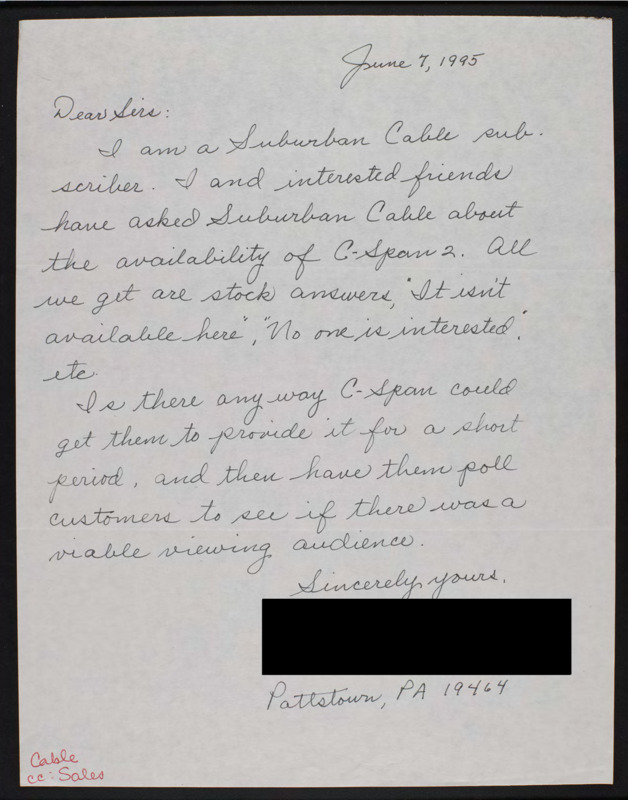 June 7, 1995
Dear Sirs:
I am a Suburban Cable sub-
scriber. I and interested friends
have asked Suburban Cable about
the availability of C-Span 2. All
we get are stock answers, "It isn't
available here", "No one is interested",
etc.
Is there any way C-Span could
get them to provide it for a short
period, and then have them poll
customers to see if there was a
viable viewing audience.
Sincerely yours,
Pottstown, PA 19464
Cable
cc: Sales